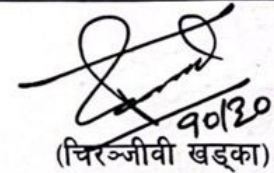 १०।३०
(चिरञ्जीवी खड्का)